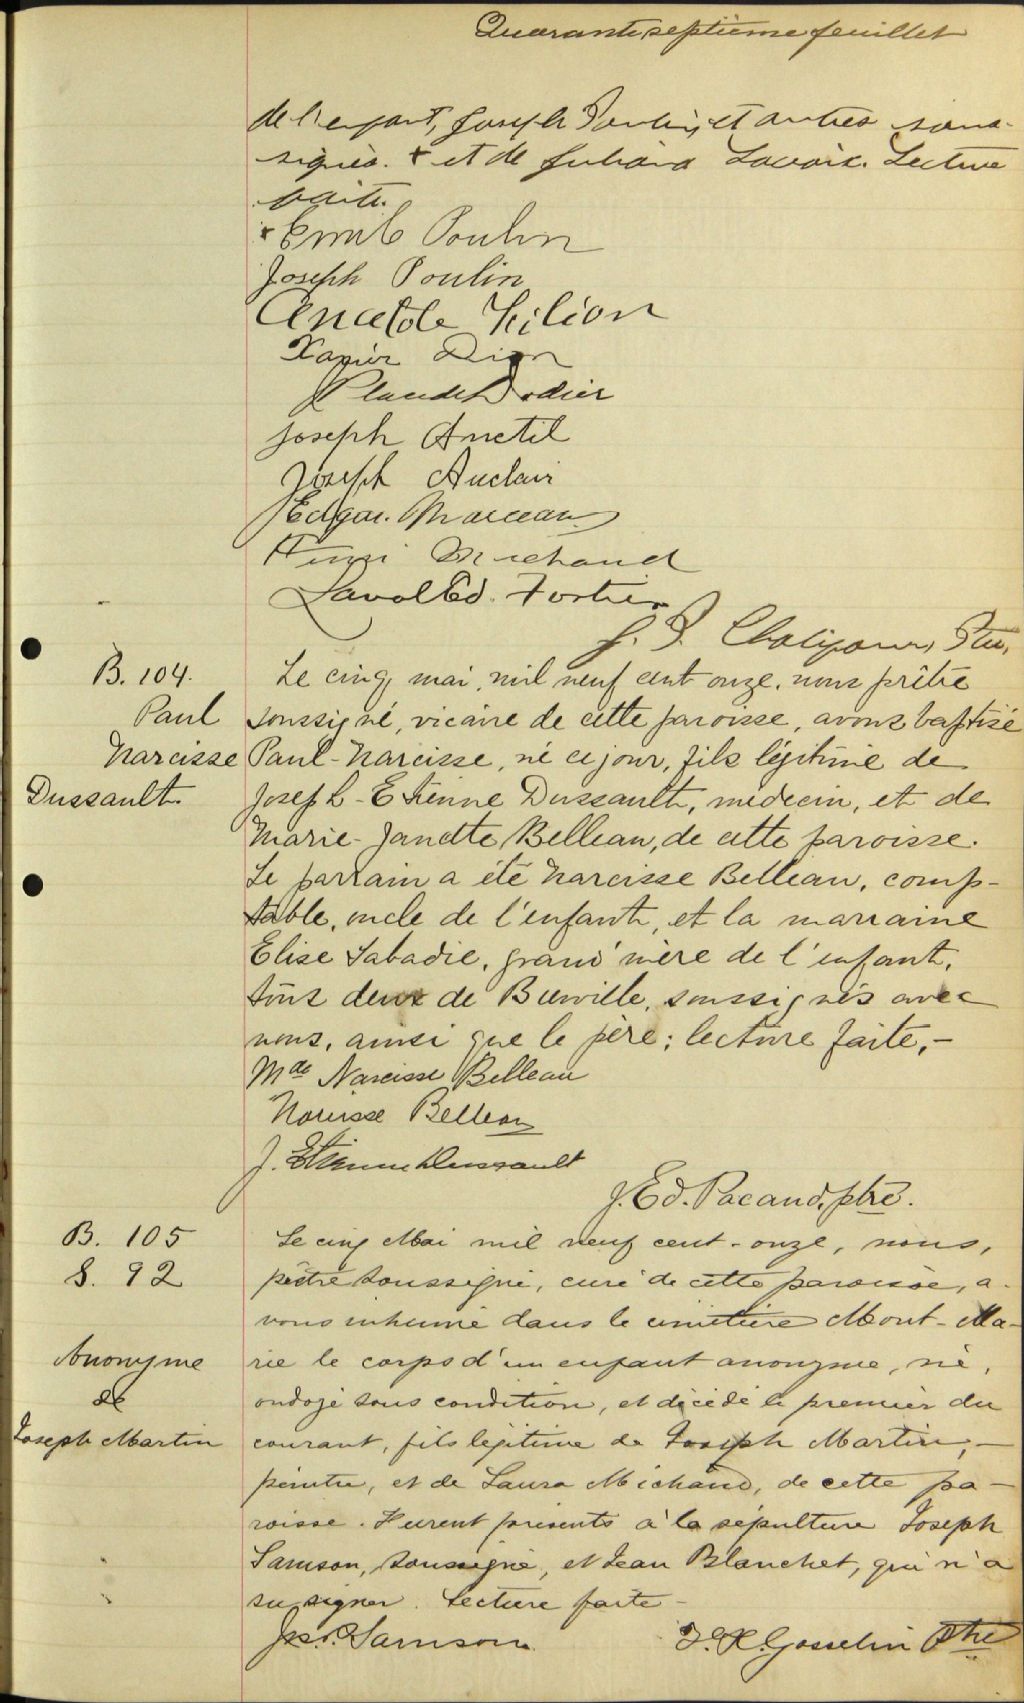 Quarante septième feuillet
de l'enfant, Joseph Poulin, et autres sous-
signés. + et de Juliana Lavoix. Lecture
faite.
+ Emile Poulin
Joseph Poulin
Anatole Filion
Xavier Dion
Plaude Dodier
Joseph Anctil
Joseph Auclair
Edgar. Marceau
Henri Michaud
Laval Ed. Fortier
B. 104.
Paul
Narcisse
Dussault.
Le cinq mai, mil neuf cent onze, nous prêtre
soussigné, vicaire de cette paroisse, avons baptisé
Paul-Narcisse, né ce jour, fils légitime de
Joseph-Etienne Dussault, médecin, et de
Marie-Janette Belleau, de cette paroisse.
Le parrain a été Narcisse Belleau, comp-
table, oncle de l'enfant, et la marraine
Elise Labadie, grand'mère de l'enfant,
tous deux de Bienville, soussignés avec
nous, ainsi que le père; lecture faite,-
Mde Narcisse Belleau
Narcisse Belleau
J. Etienne Dussault
J. Ed. Pacaud, ptre.
B. 105
S. 92
Anonyme
de
Joseph Martin
Le cinq Mai mil neuf cent-onze, nous,
prêtre soussigné, curé de cette paroisse, a-
vons inhumé dans le cimetière Mont-Ma-
rie le corps d'un enfant anonyme, né,
ondoyé sous condition, et décédé le premier du
courant, fils légitime de Joseph Martin,-
peintre, et de Laura Michaud, de cette pa-
roisse. Furent présents à la sépulture Joseph
Samson, soussigné, et Jean Blanchet, qui n'a
su signer. Lecture faite-
Jos. Samson
F. X. Gosselin Ptre